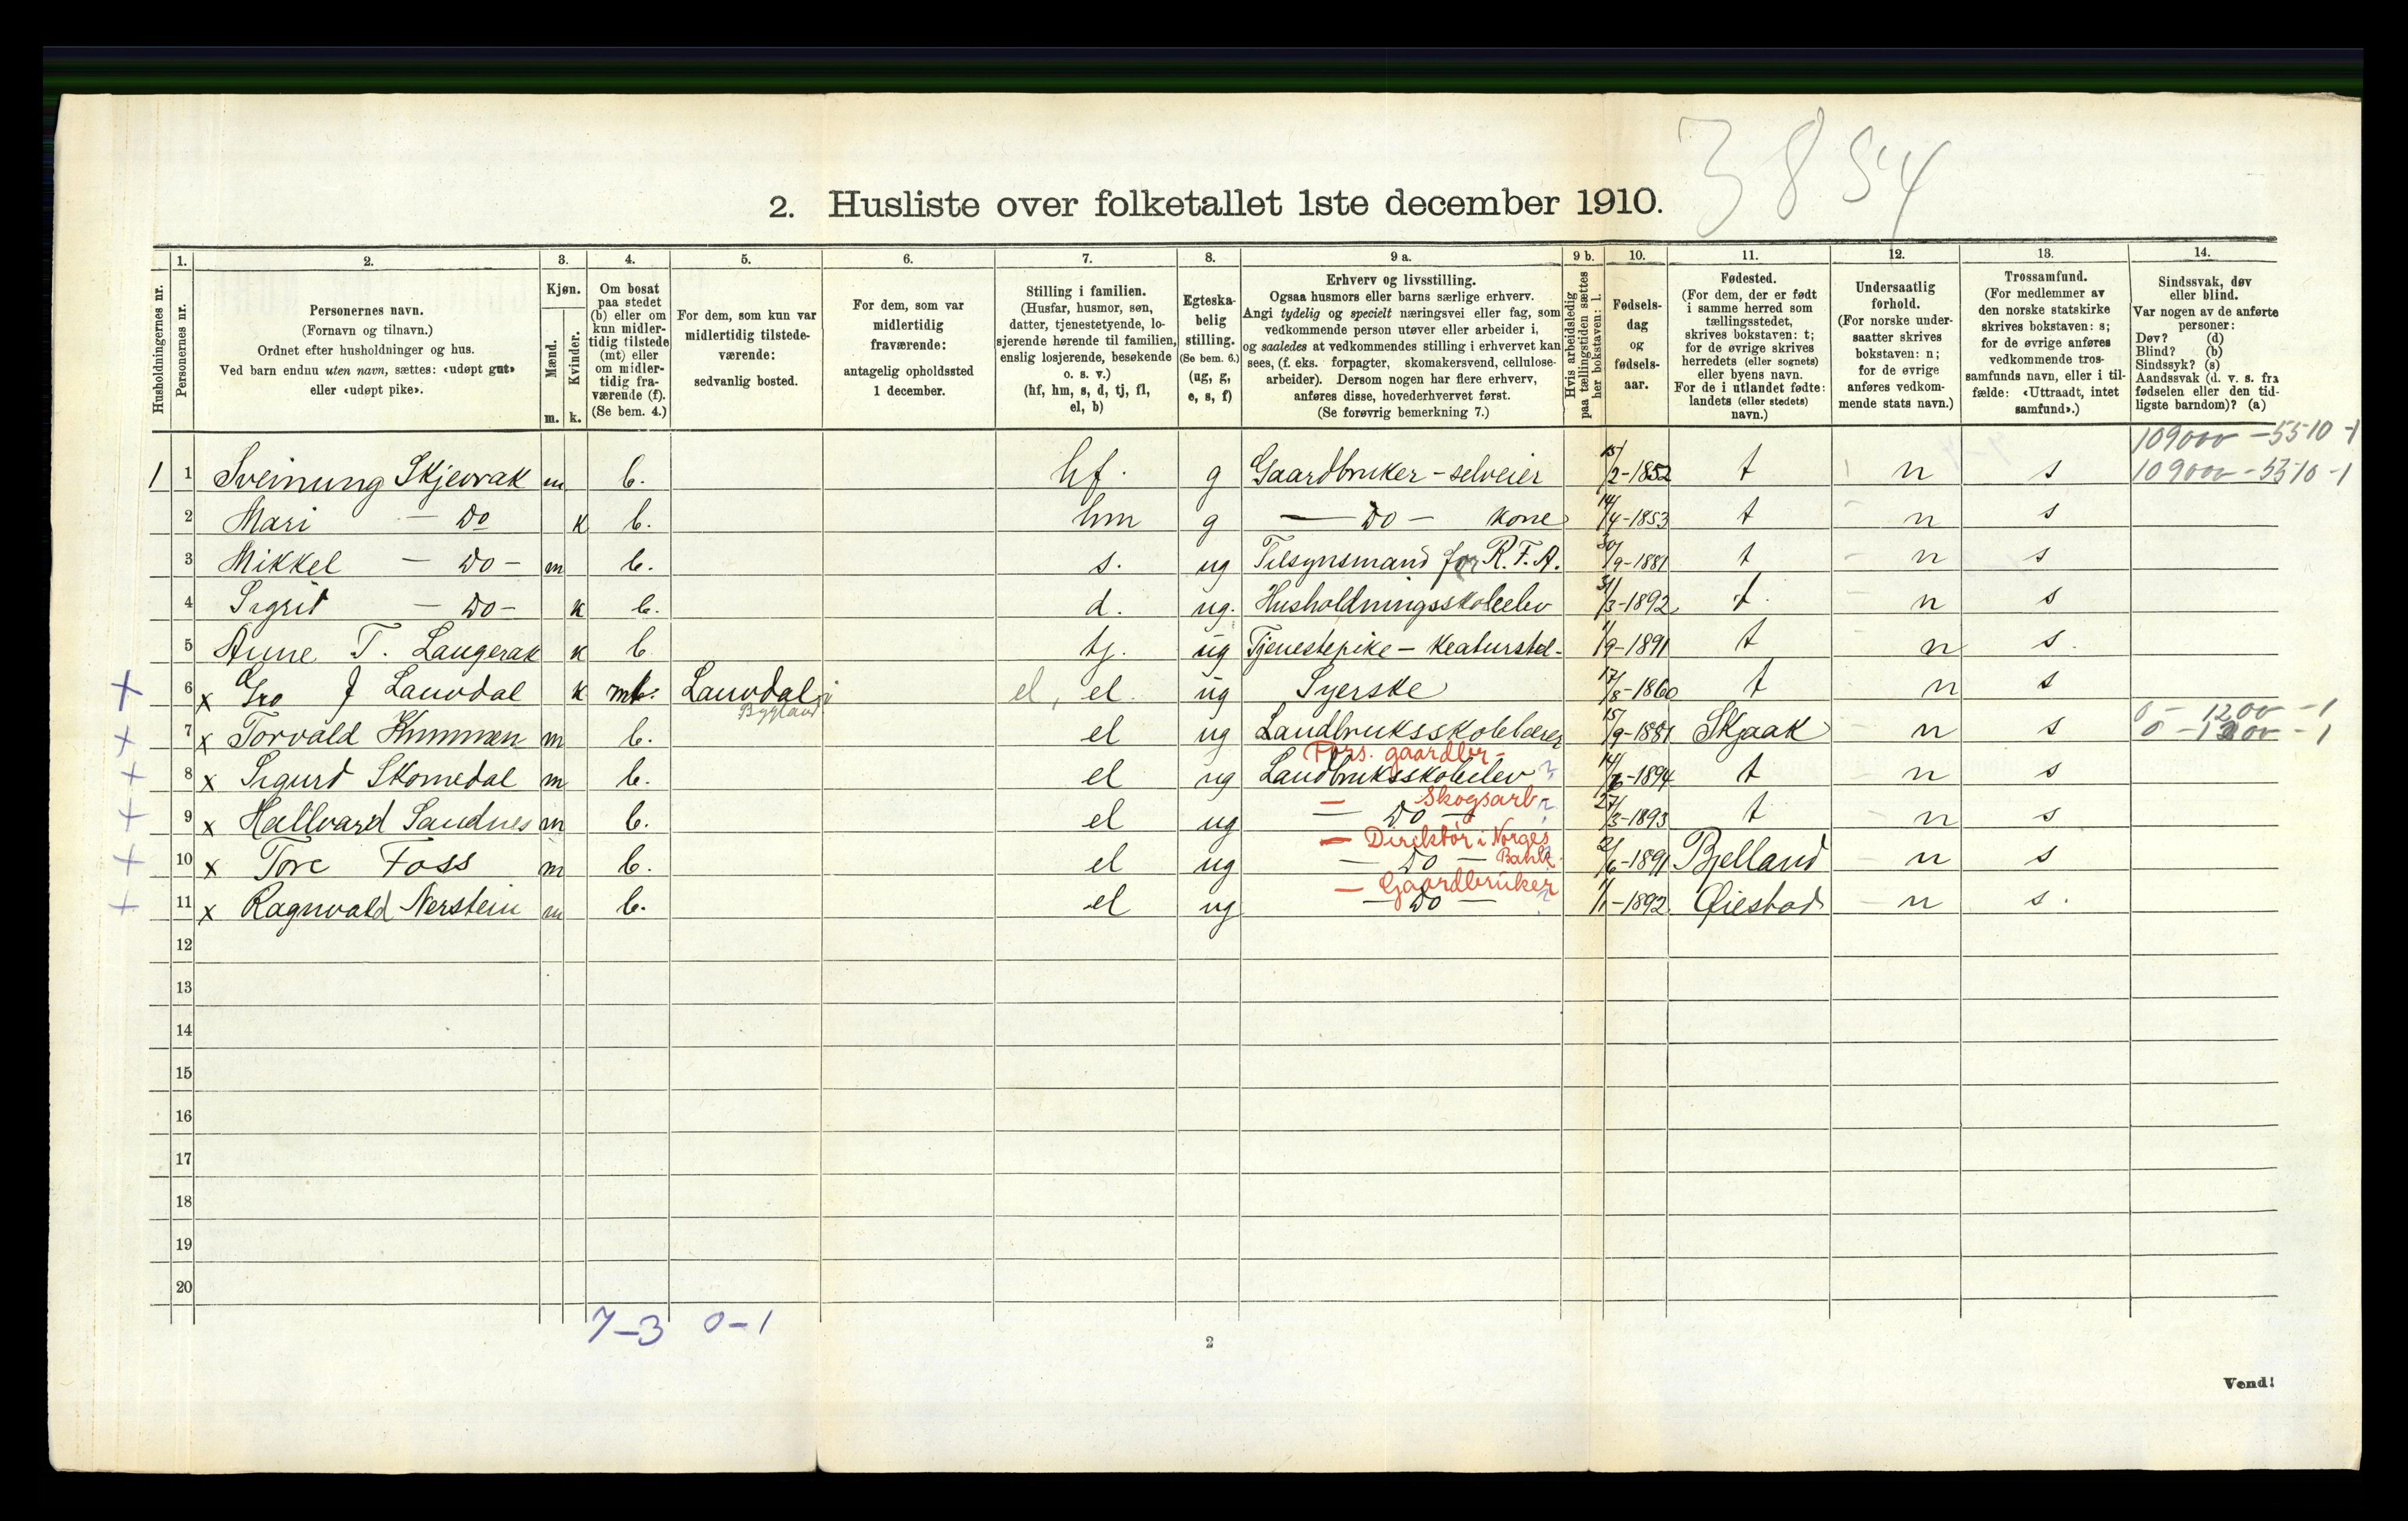 3854
2. Husliste over folketallet 1ste december 1910.
Husholdningernes nr.
1.
Personernes nr.
2.
Personernes navn.
(Fornavn og tilnavn.)
Ordnet efter husholdninger og hus.
Ved barn endnu uten navn, sættes: «udøpt gut»
eller «udøpt pike».
3.
Kjøn.
Mænd.
Kvinder.
m. k.
4.
Om bosat
paa stedet
(b) eller om
kun midler-
tidig tilstede
(mt) eller
om midler-
tidig fra-
værende (f).
(Se bem. 4.)
5.
For dem, som kun var
midlertidig tilstede-
værende:
sedvanlig bosted.
6.
For dem, som var
midlertidig
fraværende:
antagelig opholdssted
1 december.
7.
Stilling i familien.
(Husfar, husmor, søn,
datter, tjenestetyende, lo-
sjerende hørende til familien,
enslig losjerende, besøkende
o. s. v.)
(hf, hm, s, d, tj, fl,
el, b)
8.
Egteska-
belig
stilling.
(Se bem. 6.)
(ug, g,
e, s, f)
9 a.
Erhverv og livsstilling.
Ogsaa husmors eller barns særlige erhverv.
Angi tydelig og specielt næringsvei eller fag, som
vedkommende person utøver eller arbeider i,
og saaledes at vedkommendes stilling i erhvervet kan
sees, (f. eks. forpagter, skomakersvend, cellulose-
arbeider). Dersom nogen har flere erhverv,
anføres disse, hovederhvervet først.
(Se forøvrig bemerkning 7.)
9 b.
Hvis arbeidsledig
paa tællingstiden sættes
her bokstaven: l.
10.
Fødsels-
dag
og
fødsels-
aar.
11.
Fødested.
(For dem, der er født
i samme herred som
tællingsstedet,
skrives bokstaven: t;
for de øvrige skrives
herredets (eller sognets)
eller byens navn.
For de i utlandet fødte:
landets (eller stedets)
navn.)
12.
Undersaatlig
forhold.
(For norske under-
saatter skrives
bokstaven: n;
for de øvrige
anføres vedkom-
mende stats navn.)
13.
Trossamfund.
(For medlemmer av
den norske statskirke
skrives bokstaven: s;
for de øvrige anføres
vedkommende tros-
samfunds navn, eller i til-
fælde: «Uttraadt, intet
samfund».)
14.
Sindssvak, døv
eller blind.
Var nogen av de anførte
personer:
Døv? (d)
Blind? (b)
Sindssyk? (s)
Aandssvak (d. v. s. fra
fødselen eller den tid-
ligste barndom)? (a)
109000 - 5510 - 1
1 1 Sveinung Skjevrak m b. hf. g Gaardbruker - selveier 15/2-1852 t n s 109000 - 5510 - 1
2 Mari - Do k b. hm g - Do - kone 14/4-1853 t n s
3 Mikkel - Do - m b. s. ug Tilsynsmand for R.F.A. 30/9-1881 t n s
4 Sigrid - Do - k b. d. ug. Husholdningsskoleelev 31/3-1892 t. n s
5 Anne T. Langerak k b tj. ug Tjenestepike - Kreaturstel - 1/9-1891 t n s.
+ 6 x Gro J Lauvdal k mt. Lauvdal el, el. ug Syerske 17/8-1860 t n s
Bygland
0 - 1200 - 1
+ 7 x Torvald m b. el ug Landbruksskolelærer 15/9-1881 Skjaak n s 0 - 1200 - 1
Fors. gaardbr -
+ 8 x Sigurd Skomedal m b. el ug Landbruksskoleelev ? 14/6-1894 t n s
- Skogsarb ?
+ 9 x Hallvard Sandnes m b. el ug - Do - 27/3-1893 t n s
- Direktör i Norges
Bank
+ 10 x Tore Foss m b. el ug - Do - 21/6-1891 Bjelland n s
- Gaardbruker
+ 11 x Ragnvald Nerstein m b. el ug - Do - ? 1/1-1892 Øiestad n s.
12
13
14
15
16
17
18
19
20
7-3 0-1
2
Vend!